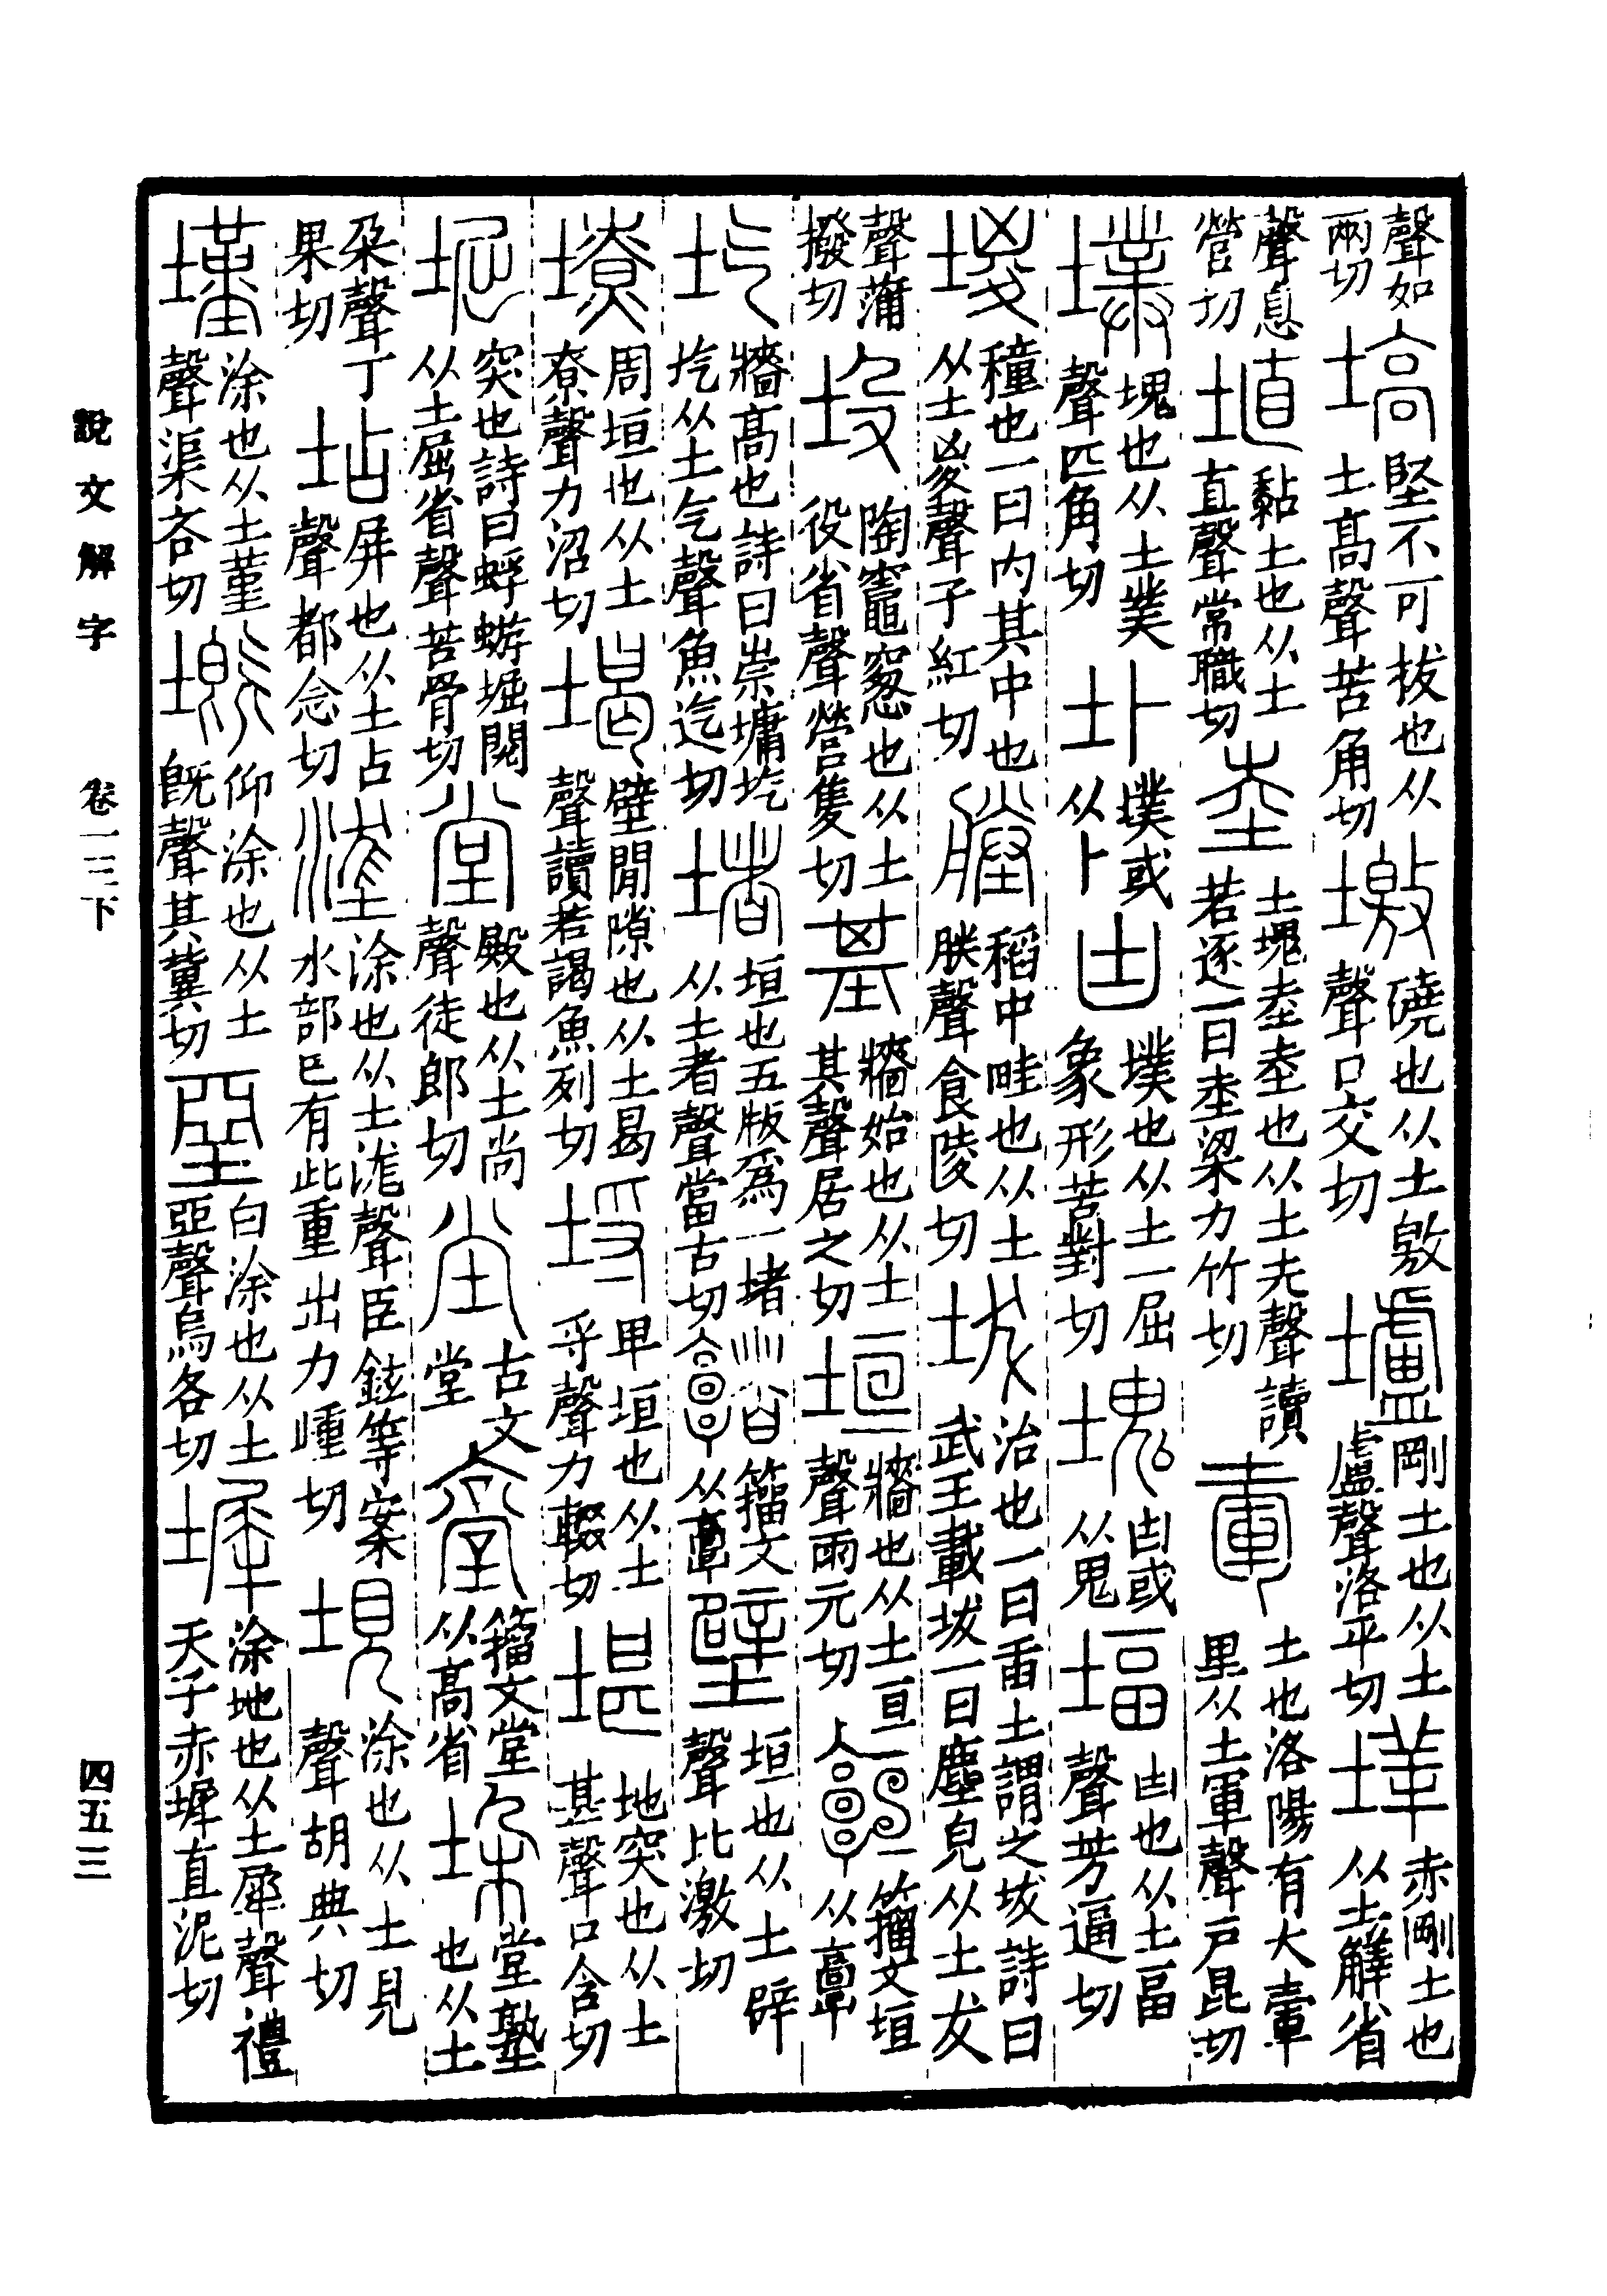 聲如兩切 塙 堅不可拔也从土高聲苦角切 墽 磽也从土敫聲口交切 壚 剛土也从土盧聲洛乎切 垟 赤剛土也从土觲省
聲息營切 埴 黏土也从土直聲常職切 坴 土塊坴坴也从土圥聲讀若逐一曰坴梁力竹切 土也洛陽有大里从土軍聲戶昆切
墣 塊也从土菐聲匹角切 圤 墣或从卜 凷 墣也从土一屈象形苦對切 塊 凷或从鬼 堛 凷也从土畐聲芳逼切
堫 種也一曰内其中也从土㚇聲子紅切 塍 稻中畦也从土朕聲食陵切 坺 治也一曰臿土謂之坺詩曰武王載坺一曰塵皃从土犮
聲蒲撥切 垼 陶竈窻也从土役省聲營隻切 基 牆始也从土其聲居之切 垣 牆也从土亘聲雨元切 𩫡 籒文垣从𩫖
圪 牆高也詩曰崇墉圪圪从土气聲魚迄切 堵 垣也五版爲一堵从土者聲當古切 𩫨 籒文从𩫖 壁 垣也从土辟聲比激切
㙩 周垣也从土尞聲力沼切 堨 壁閒隙也从土曷聲讀若謁魚列切 埒 卑垣也从土寽聲力輟切 堪 地突也从土甚聲口含切
堀 突也詩曰蜉蝣堀閱从土屈省聲苦骨切 堂 殿也从土尚聲徒郎切 坣 古文堂 籒文堂从高省 垛 堂塾也从土
朵聲丁果切 坫 屏也从土占聲都念切 涂也从土浝聲臣鉉等案水部已有此重出力歱切 垷 涂也从土見聲胡典切
墐 涂也从土堇聲渠吝切 塈 仰涂也从土旣聲其冀切 堊 白涂也从土亞聲烏各切 墀 涂地也从土犀聲禮天子赤墀直泥切
說文解字 卷一三下 四五三